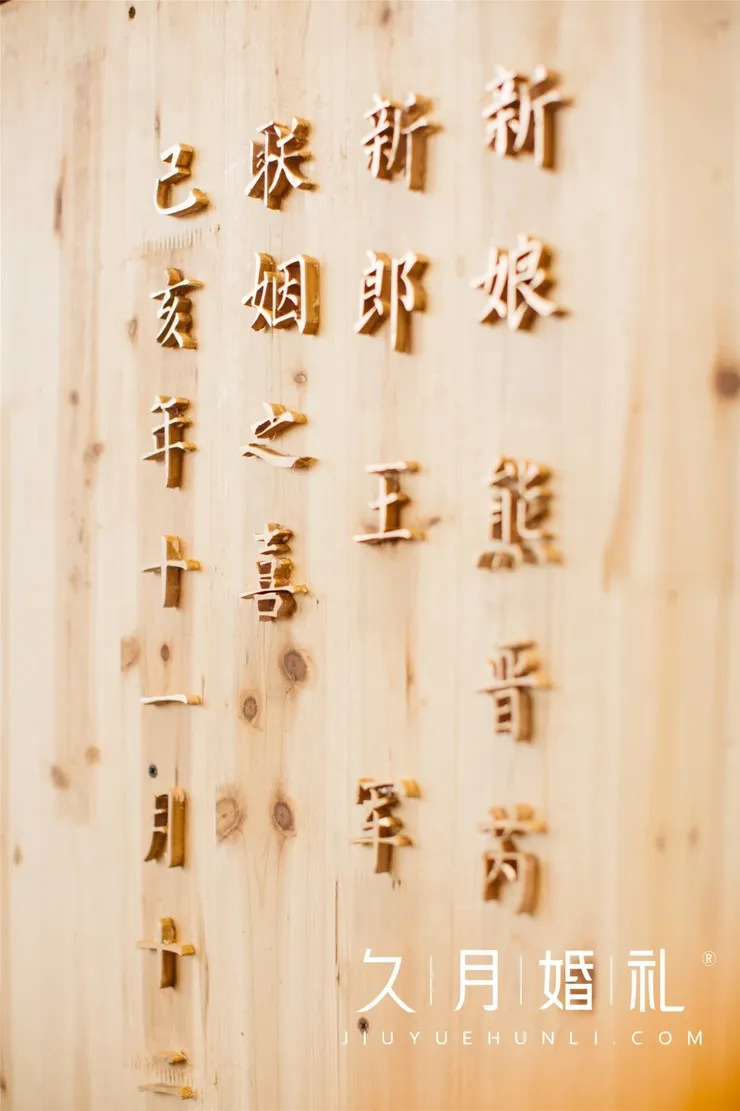 新娘 熊晋芮
新郎 王军
联姻之喜
己亥年十一月十二
久月婚礼®
JIUYUEHUNLI.COM